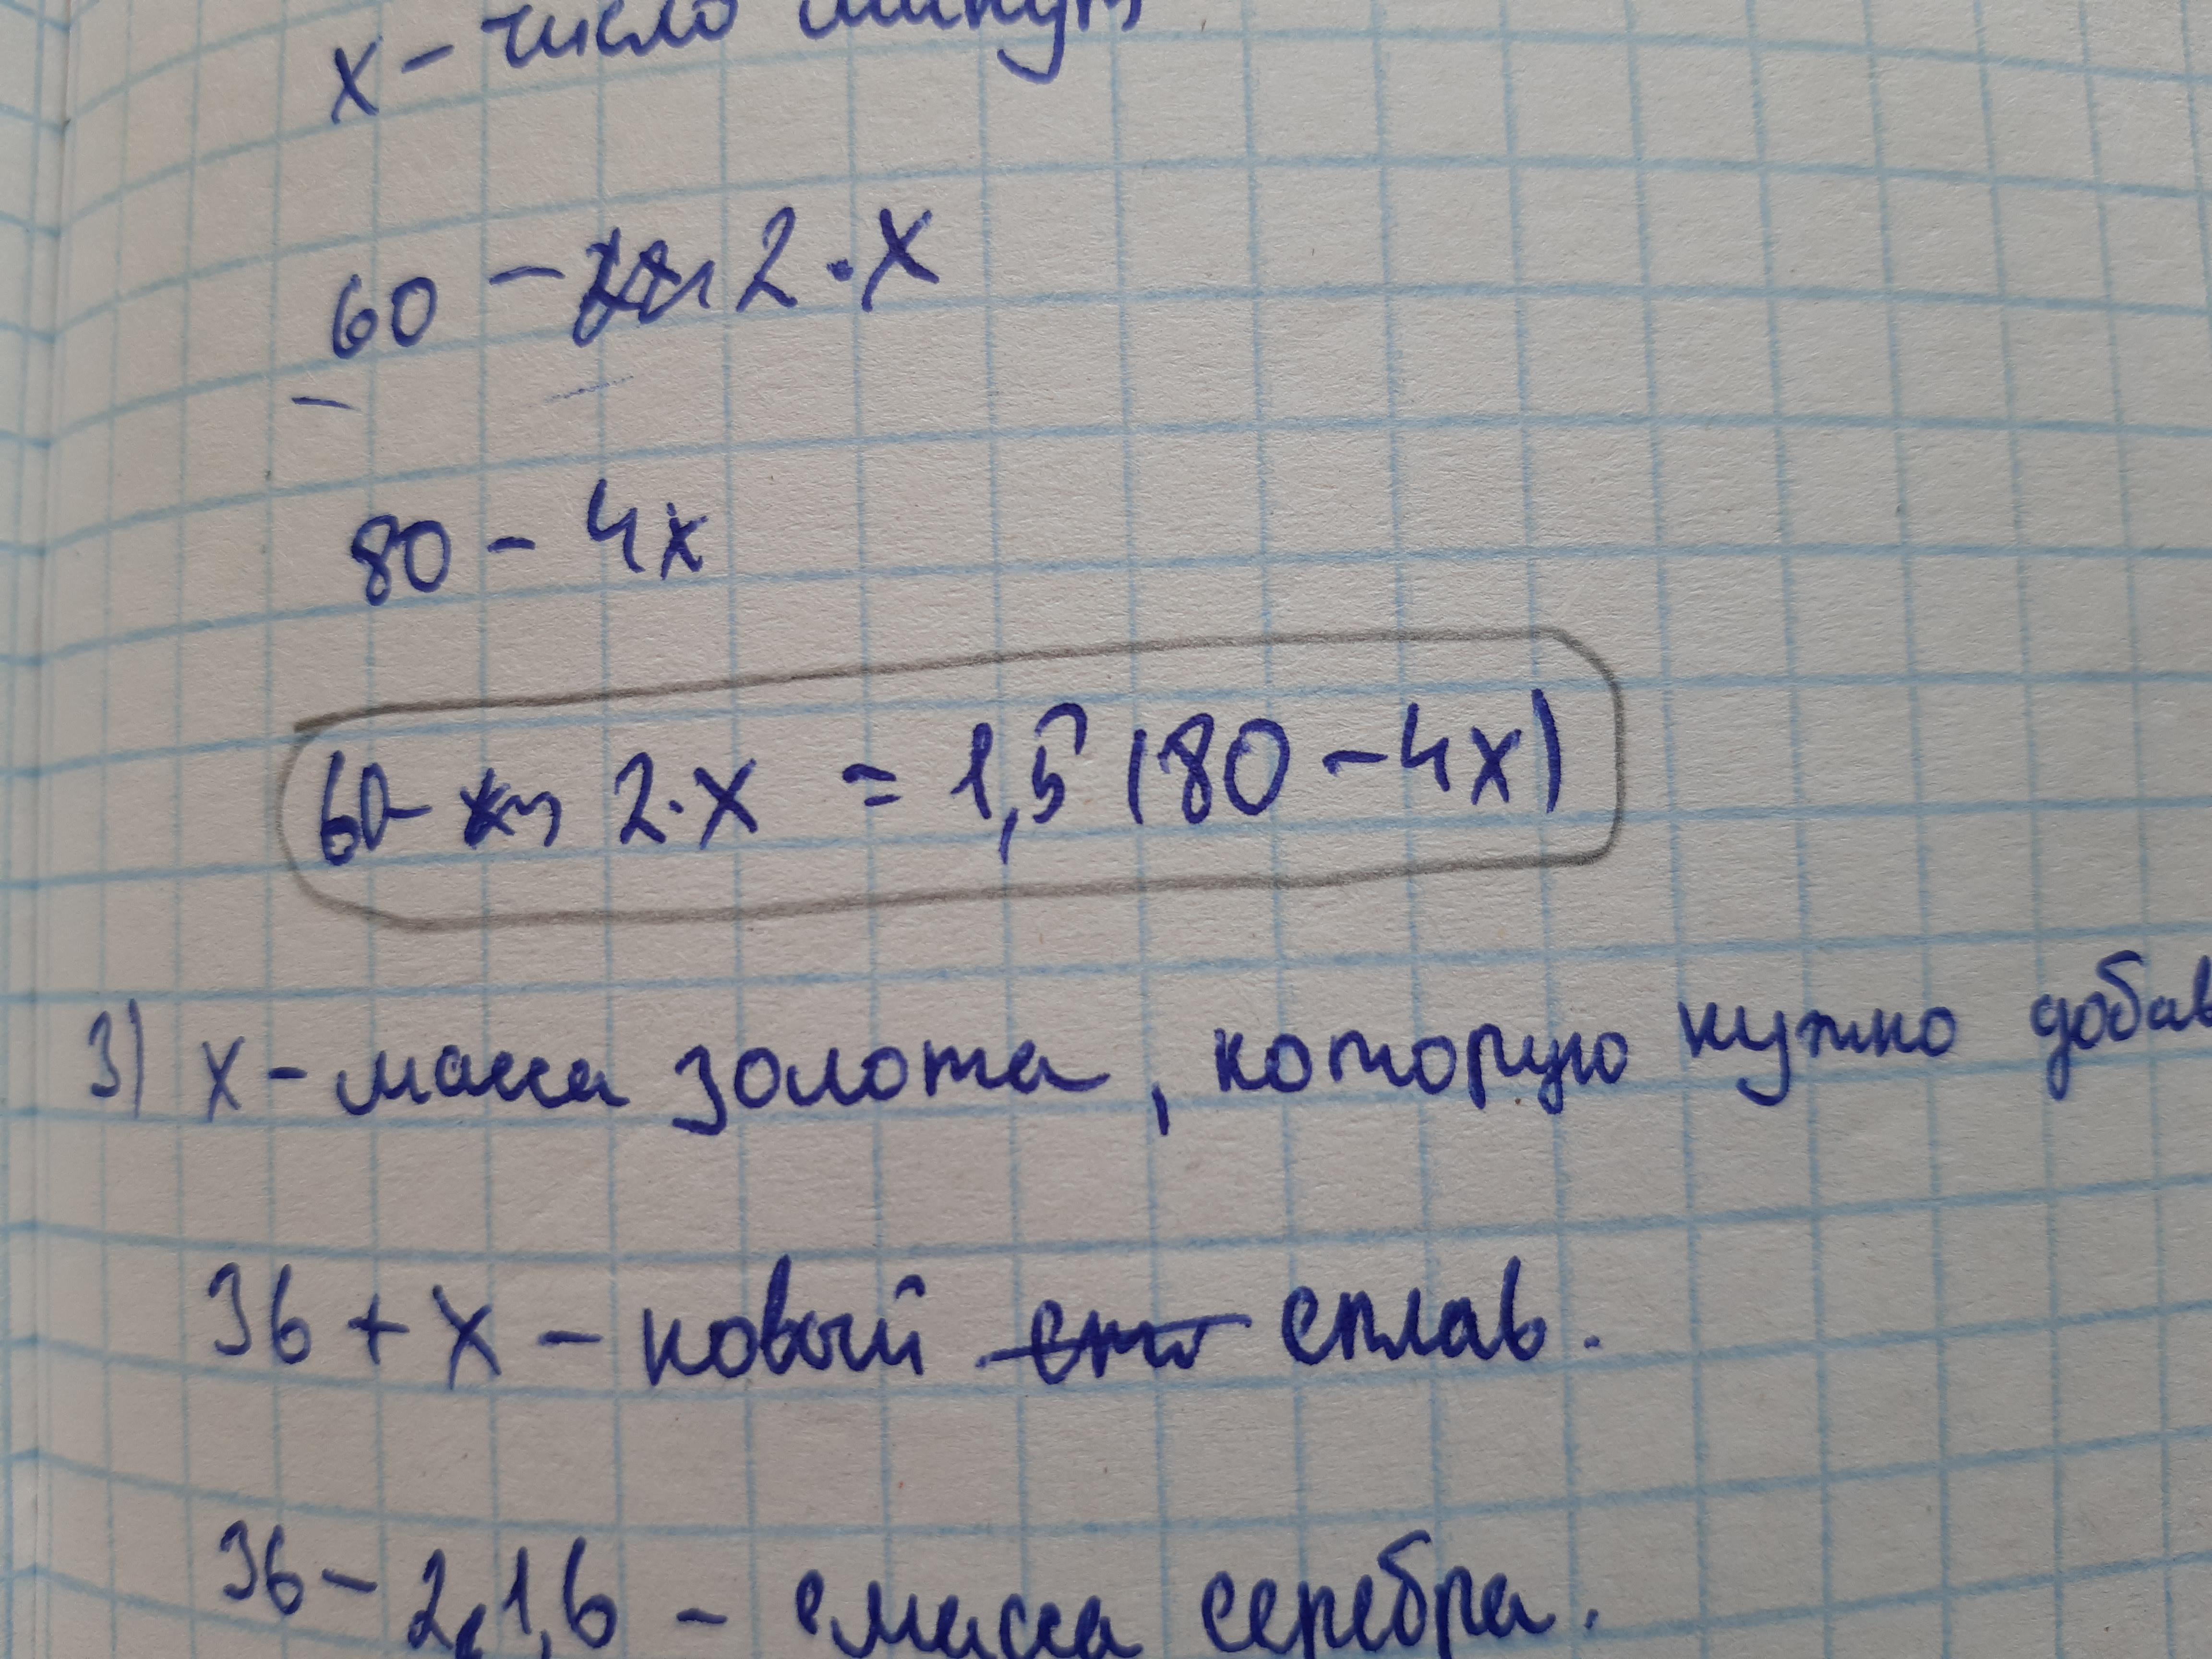 x - число минут
60 - 2·x
80 - 4x
60 - 2·x = 1,5 (80 - 4x)
3) x - масса золота, которую нужно добав
36 + x - новый сплав.
36 - 21,6 - масса серебра.